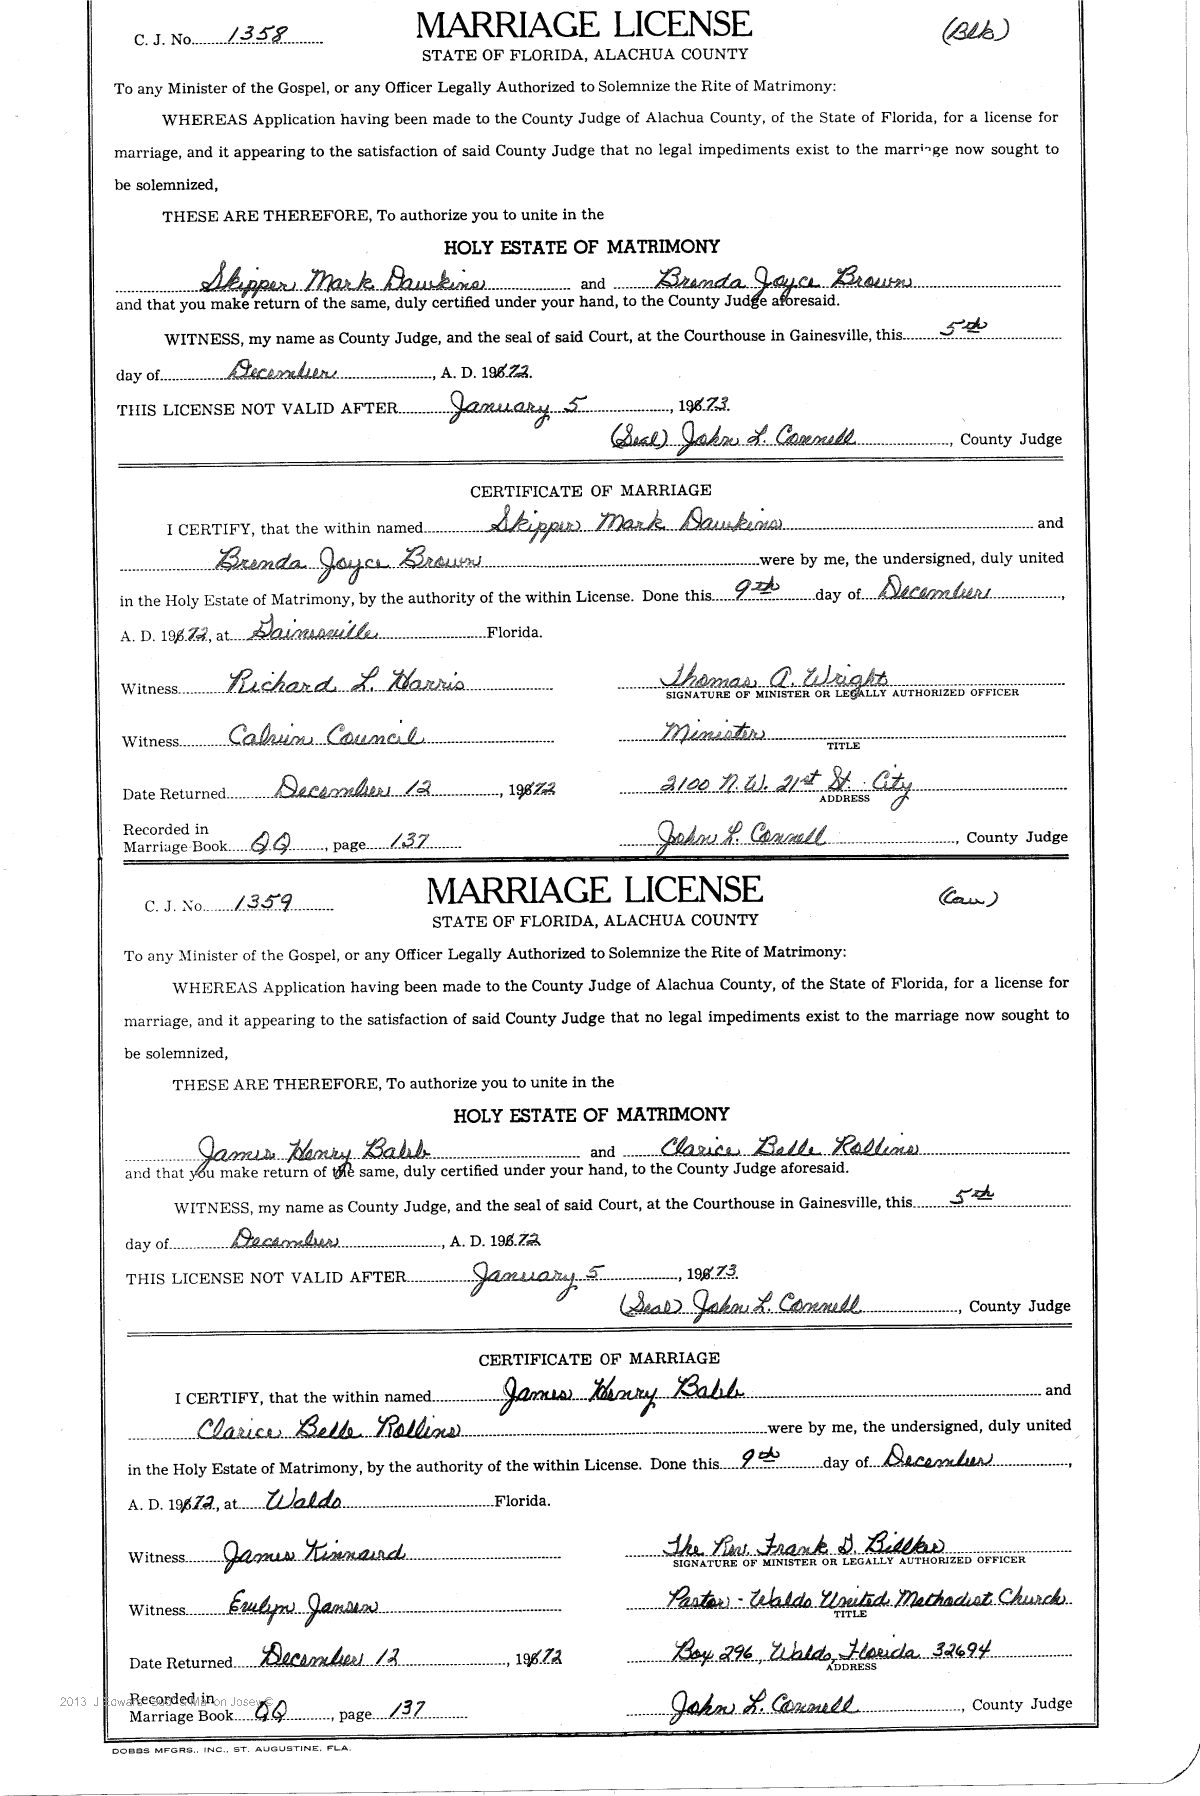 C. J. No. 1358 MARRIAGE LICENSE (Blk)
STATE OF FLORIDA, ALACHUA COUNTY
To any Minister of the Gospel, or any Officer Legally Authorized to Solemnize the Rite of Matrimony:
WHEREAS Application having been made to the County Judge of Alachua County, of the State of Florida, for a license for
marriage, and it appearing to the satisfaction of said County Judge that no legal impediments exist to the marriage now sought to
be solemnized,
THESE ARE THEREFORE, To authorize you to unite in the
HOLY ESTATE OF MATRIMONY
Skipper Mark Dawkins and Brenda Joyce Brown
and that you make return of the same, duly certified under your hand, to the County Judge aforesaid.
WITNESS, my name as County Judge, and the seal of said Court, at the Courthouse in Gainesville, this 5th
day of December, A. D. 1972.
THIS LICENSE NOT VALID AFTER January 5, 1973.
(Seal) John L. Connell, County Judge
CERTIFICATE OF MARRIAGE
I CERTIFY, that the within named Skipper Mark Dawkins and
Brenda Joyce Brown were by me, the undersigned, duly united
in the Holy Estate of Matrimony, by the authority of the within License. Done this 9th day of December,
A. D. 1972, at Gainesville Florida.
Witness Richard L. Harris Thomas A. Wright
SIGNATURE OF MINISTER OR LEGALLY AUTHORIZED OFFICER
Witness Calvin Council Minister
TITLE
Date Returned December 12, 1972 2100 N.W. 21st St. City
ADDRESS
Recorded in
Marriage Book QQ, page 137 John L. Connell, County Judge
C. J. No. 1359 MARRIAGE LICENSE (Cau)
STATE OF FLORIDA, ALACHUA COUNTY
To any Minister of the Gospel, or any Officer Legally Authorized to Solemnize the Rite of Matrimony:
WHEREAS Application having been made to the County Judge of Alachua County, of the State of Florida, for a license for
marriage, and it appearing to the satisfaction of said County Judge that no legal impediments exist to the marriage now sought to
be solemnized,
THESE ARE THEREFORE, To authorize you to unite in the
HOLY ESTATE OF MATRIMONY
James Henry Babb and Clarice Belle Rollins
and that you make return of the same, duly certified under your hand, to the County Judge aforesaid.
WITNESS, my name as County Judge, and the seal of said Court, at the Courthouse in Gainesville, this 5th
day of December, A. D. 1972
THIS LICENSE NOT VALID AFTER January 5, 1973.
(Seal) John L. Connell, County Judge
CERTIFICATE OF MARRIAGE
I CERTIFY, that the within named James Henry Babb and
Clarice Belle Rollins were by me, the undersigned, duly united
in the Holy Estate of Matrimony, by the authority of the within License. Done this 9th day of December,
A. D. 1972, at Waldo Florida.
Witness James Kinnaird The Rev. Frank D.
SIGNATURE OF MINISTER OR LEGALLY AUTHORIZED OFFICER
Witness Evelyn Jansen Pastor - Waldo United Methodist Church
TITLE
Date Returned December 12, 1972 Box 296, Waldo, Florida 32694
ADDRESS
2013 J Edward
Recorded in
Marriage Book QQ, page 137 John L. Connell, County Judge
DOBBS MFGRS., INC., ST. AUGUSTINE, FLA.